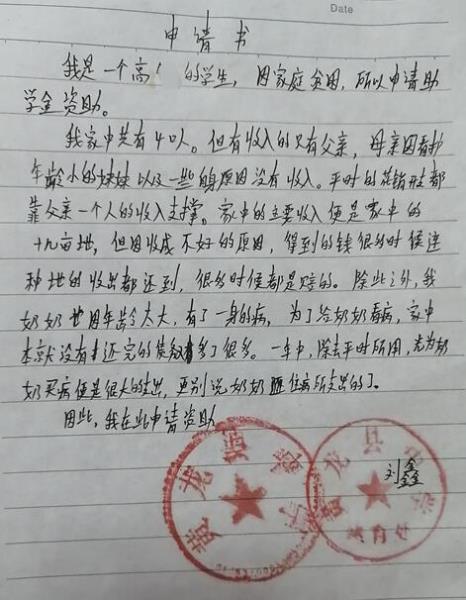 Date
申请书
我是一个高1 的学生，因家庭贫困，所以申请助
学金资助。
我家中共有4口人。但有收入的只有父亲，母亲因看护
年龄小的妹妹以及一些病原因没有收入。平时的花销开支都
靠父亲一个人的收入支撑。家中的主要收入便是家中的
十几亩地，但因收成不好的原因，得到的钱很多时候连
种地的收出都还到，很多时候都是赔的。除此之外，我
奶奶也因年龄太大，有了一身的病，为了给奶奶看病，家中
本就没有还完的债多了很多。一年中，除去平时所用，光为奶
奶买病便是很大的支出，更别说奶奶住病所支出的了。
因此，我在此申请资助
刘鑫
黄龙县
龙县
教育处